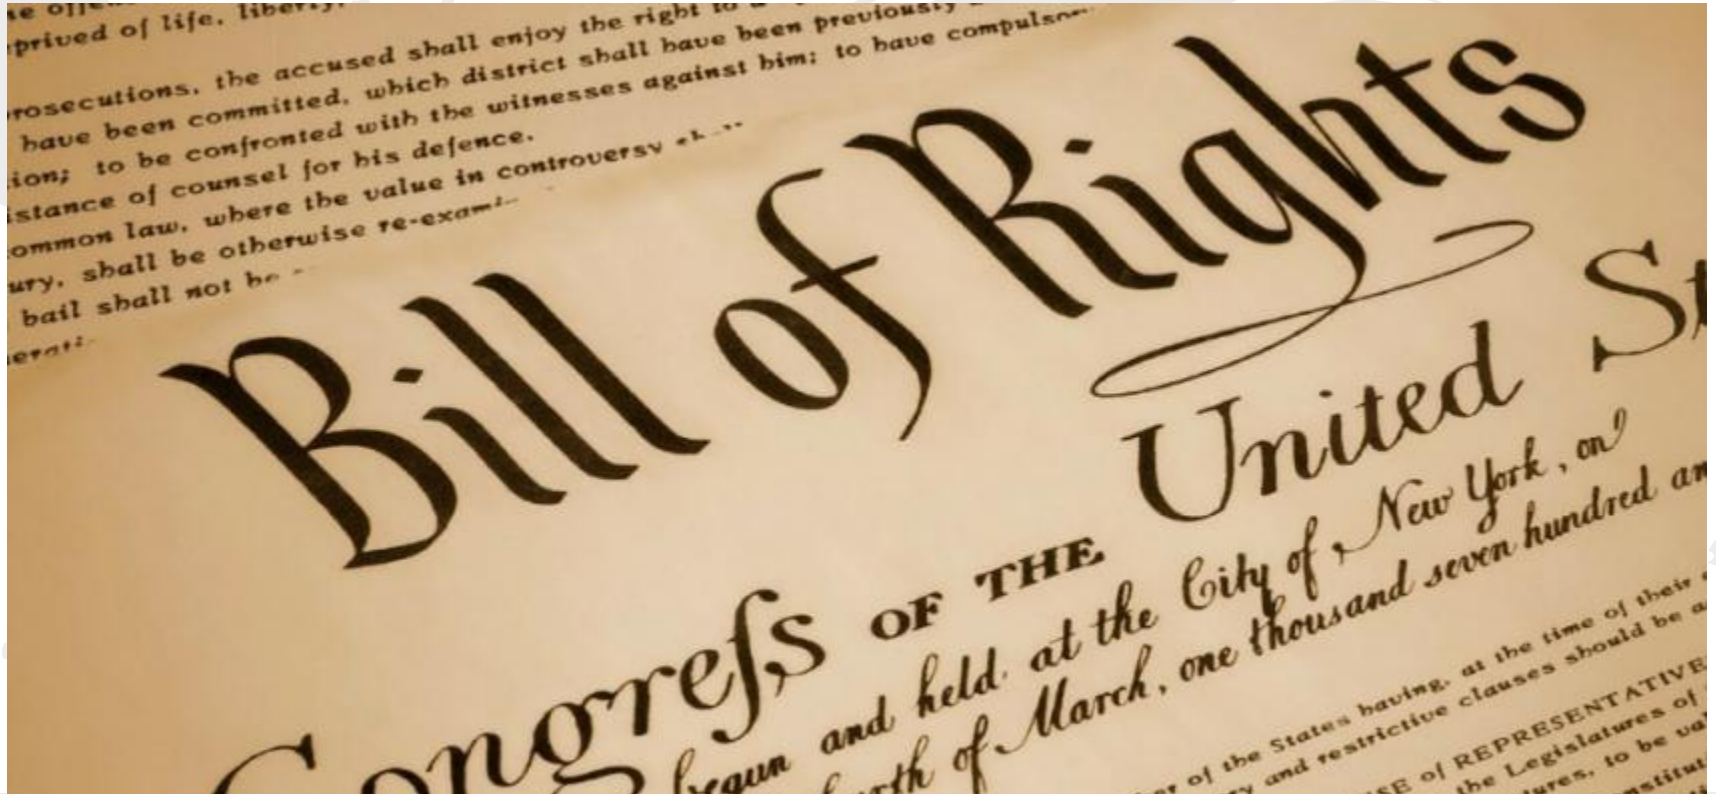 prived of life, liberty,
rosecutions, the accused shall enjoy the right to a
have been committed, which district shall have been previously
ion; to be confronted with the witnesses against him; to have compulsor
istance of counsel for his defence.
ommon law, where the value in controversy
ury, shall be otherwise re-exami
bail shall not be
erati
Bill of Rights
Congreſs OF THE United St
begun and held at the City of New York, on
rth of March, one thousand seven hundred an
er of the States having, at the time of their
y and restrictive clauses should be a
SE of REPRESENTATIVE
the Legislatures of
ures, to be val
nstitut